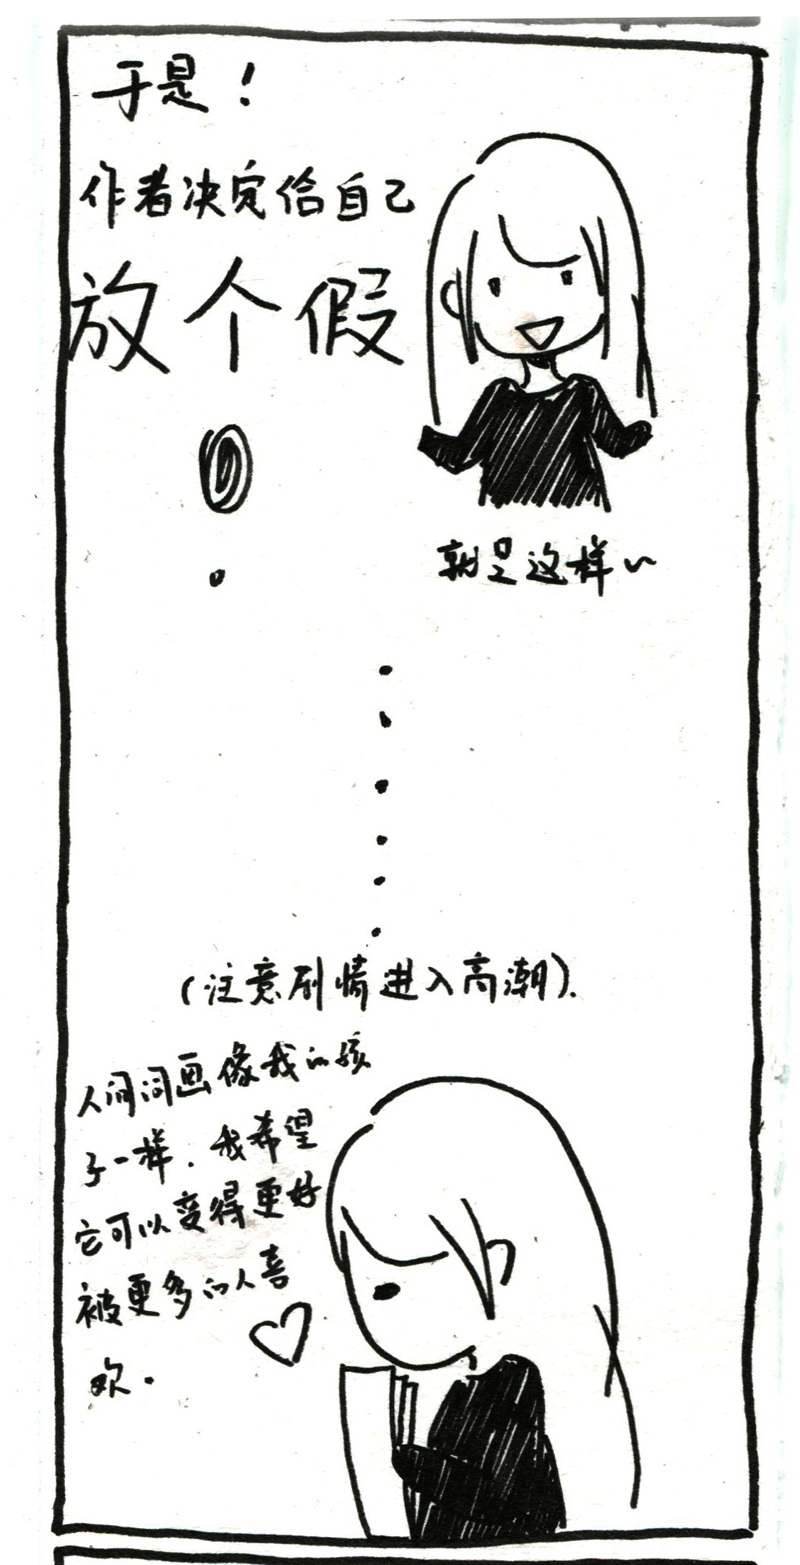 于是！
作者决定给自己
放个假
就是这样~
（注意剧情进入高潮）.
人间问画像我的孩
子一样．我希望
它可以变得更好
被更多的人喜
欢．